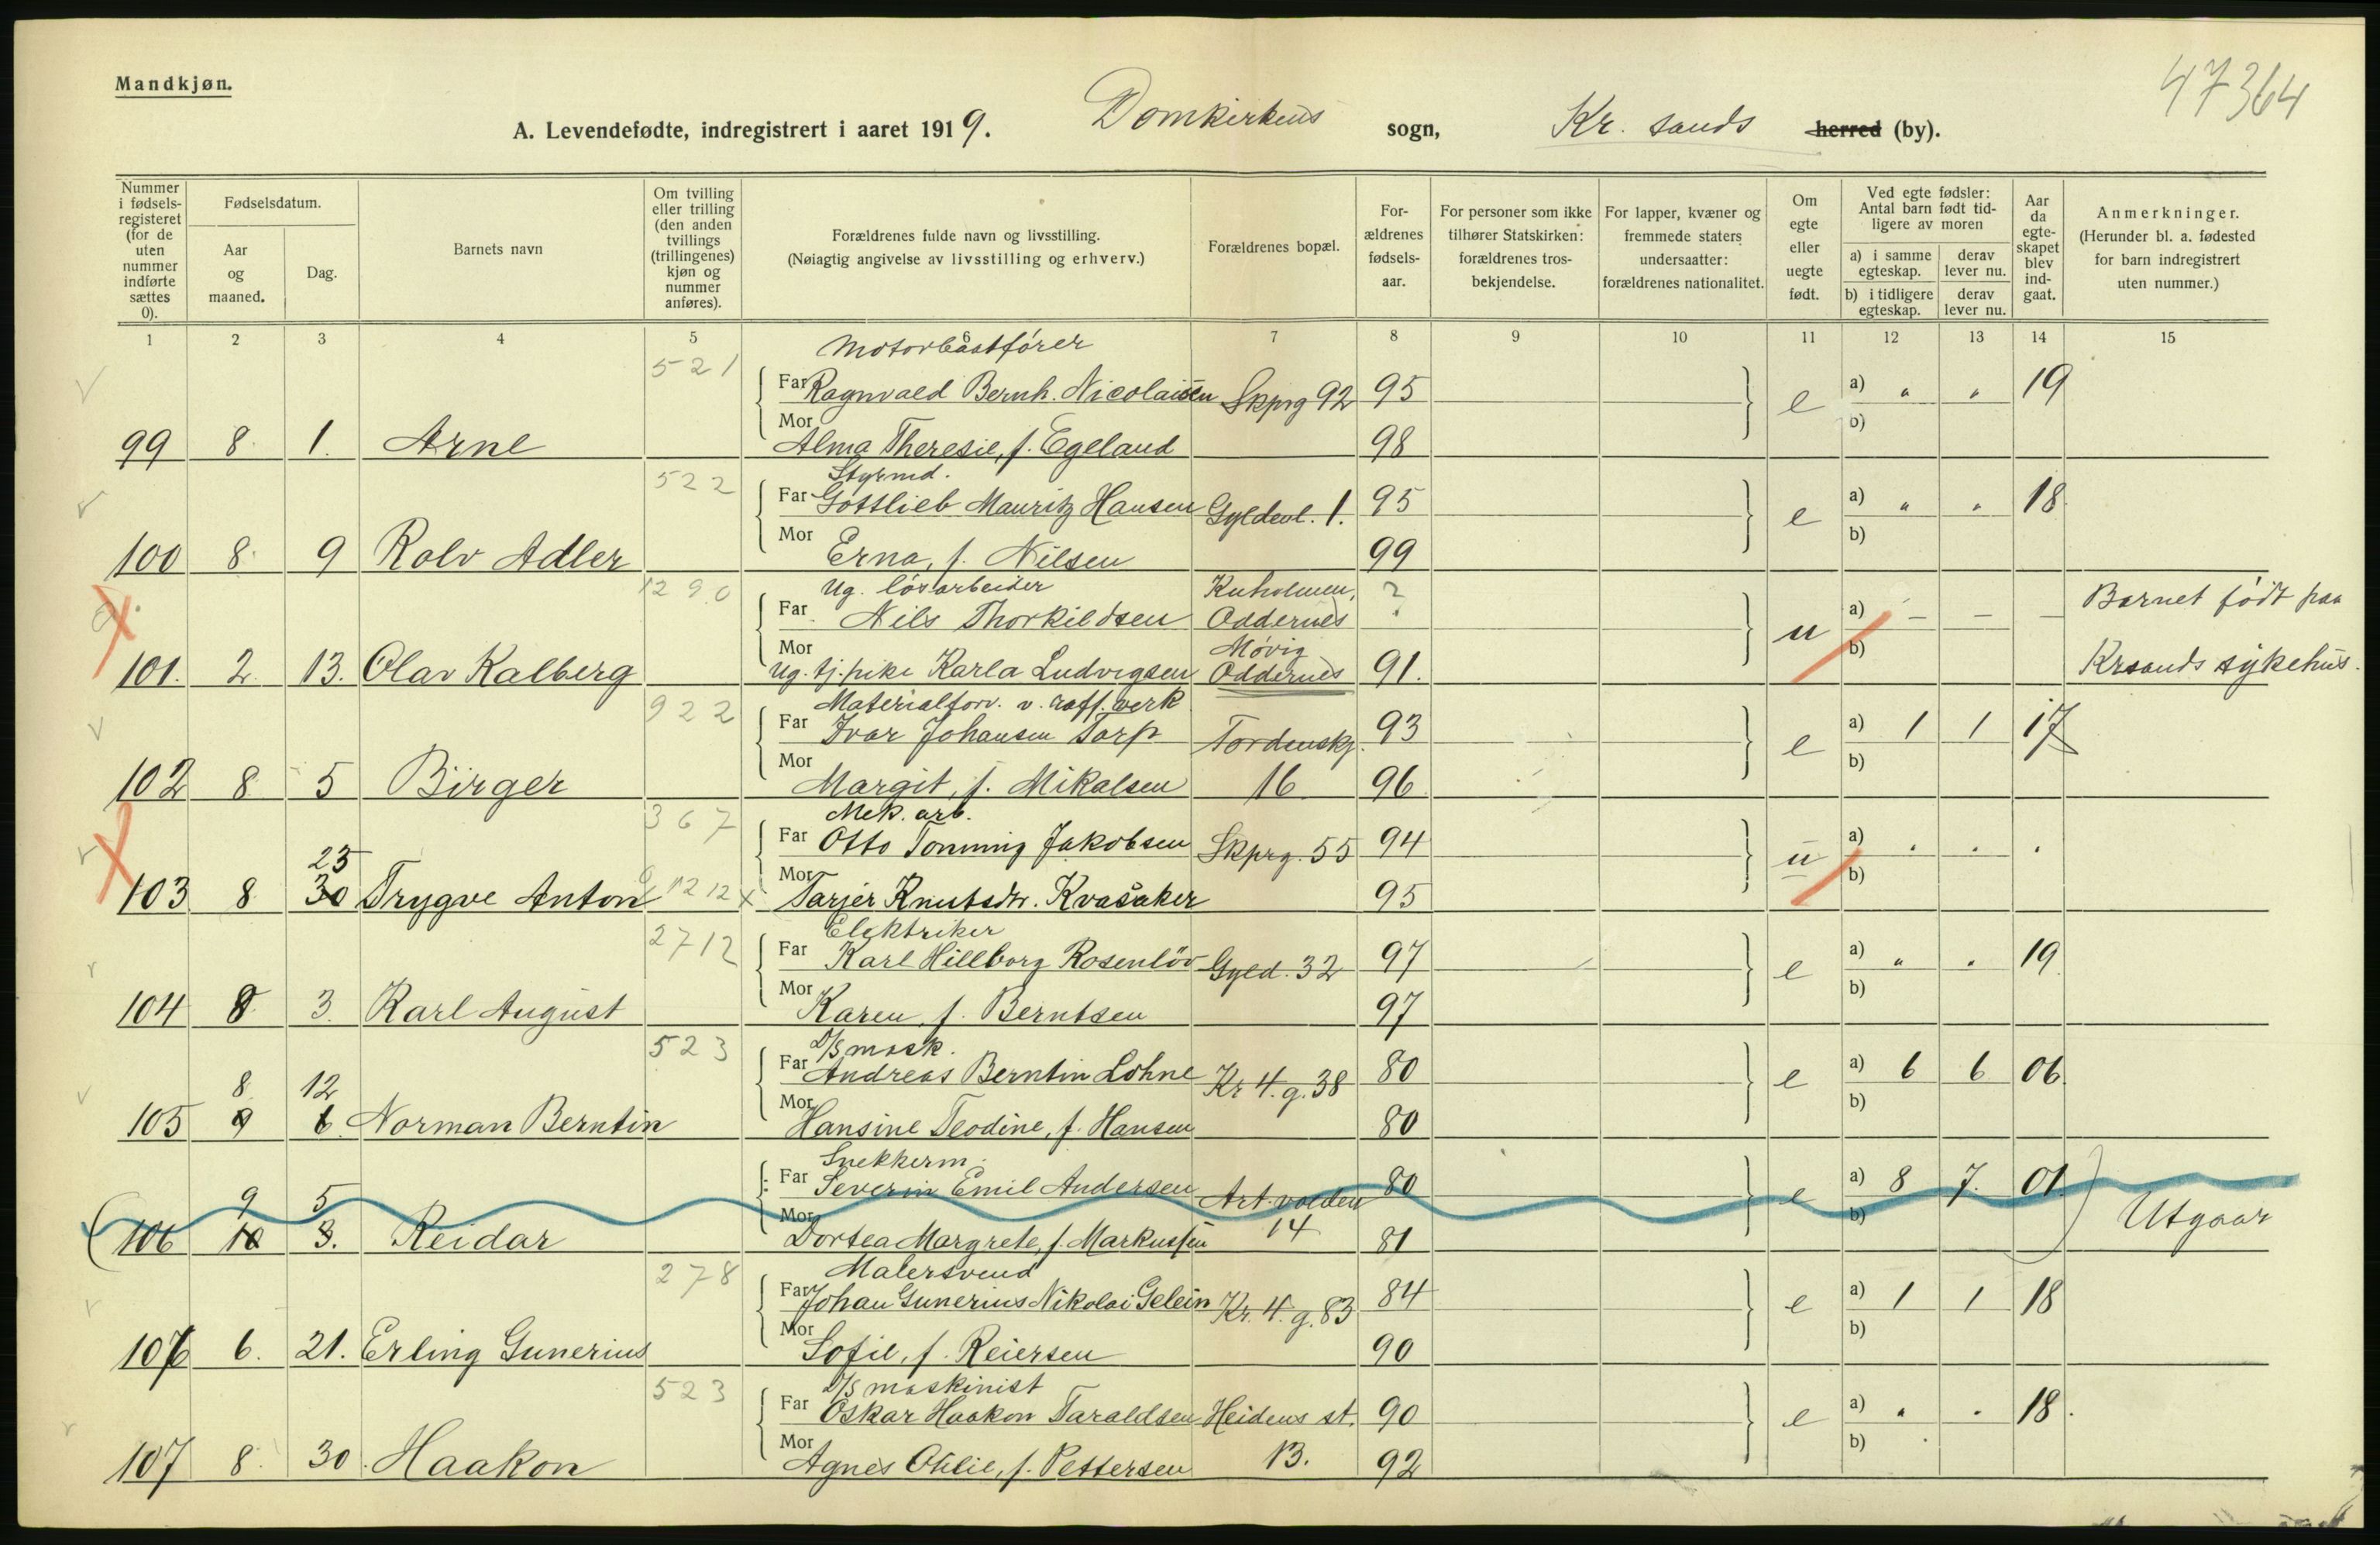 Mandkjøn.
47364
A. Levendefødte, indregistrert i aaret 1919. Domkirkens sogn, Kr. sands herred (by).
Nummer i fødsels-registeret (for de uten nummer indførte sættes 0).
Fødselsdatum.
Aar og maaned.
Dag.
Barnets navn
Om tvilling eller trilling (den anden tvillings (trillingenes) kjøn og nummer anføres).
Forældrenes fulde navn og livsstilling.
(Nøiagtig angivelse av livsstilling og erhverv.)
Forældrenes bopæl.
For-ældrenes fødsels-aar.
For personer som ikke tilhører Statskirken: forældrenes tros-bekjendelse.
For lapper, kvæner og fremmede staters undersaatter: forældrenes nationalitet.
Om egte eller uegte født.
Ved egte fødsler: Antal barn født tid-ligere av moren
a) i samme egteskap.
derav lever nu.
b) i tidligere egteskap.
derav lever nu.
Aar da egte-skapet blev ind-gaat.
Anmerkninger.
(Herunder bl. a. fødested for barn indregistrert uten nummer.)
1 2 3 4 5 6 7 8 9 10 11 12 13 14 15
521 Motorbåstfører
Far Ragnvald Bernh. Nicolaisen Skprg 92 95 e a) " " 19
Mor b)
99 8. 1. Arne Alma Theresie, f. Egeland 98
522 Styrmd.
Far Gottlieb Mauritz Hansen Gyldevl. 1. 95 e a) " " 18.
Mor b)
100 8. 9 Rolv Adler Erna, f. Nilsen 99
1290 Ug. løsarbeider Kuholmen, ?
Far Nils Thorkildsen Oddernes u a) – – – Barnet født paa
Mor Møvig b)
101. 2. 13. Olav Kalberg Ug. tj. pike Karla Ludvigsen Oddernes 91. Krsands sykehus.
922 Materialforv. v. raff. verk
Far Ivar Johansen Tarp Tordenskj. 93 e a) 1 1 17
Mor b)
102 8 5 Birger Margit, f. Mikalsen 16 96
367 Mek. arb.
Far Otto Tonning Jakobsen Skprg. 55 94 u a) . . .
25 Mor b)
103 8 30 Trygve Anton 1212 x Tarjer Knutsdtr. Kvasaker 95
2712 Elektriker
Far Karl Hillborg Rosenlöv Gyld. 32 97 e a) " . 19
Mor b)
104 8 3. Karl August Karen, f. Berntsen 97
523 D/S mask.
Far Andreas Berntin Lohne Kr 4. g. 38 80 e a) 6 6 06
8 12 Mor b)
105 9 6. Norman Berntin Hansine Teodine, f. Hansen 80
Snekkerm.
Far Severin Emil Andersen Art. volden 80 e a) 8 7. 01.
9 5 Mor b)
106 10 3. Reidar Dortea Margrete, f. Markussen 14 81 Utgaar
278 Malersvend
Far Johan Gunerius Nikolai Gelein Kr. 4. g. 83 84 e a) 1 1 18
Mor b)
106 6. 21. Erling Gunerius Sofie, f. Reiersen 90
523 D/S maskinist
Far Oskar Haakon Taraldsen Heidens st. 90 e a) " . 18.
Mor b)
107 8. 30. Haakon Agnes Otilie, f. Pettersen 13. 92